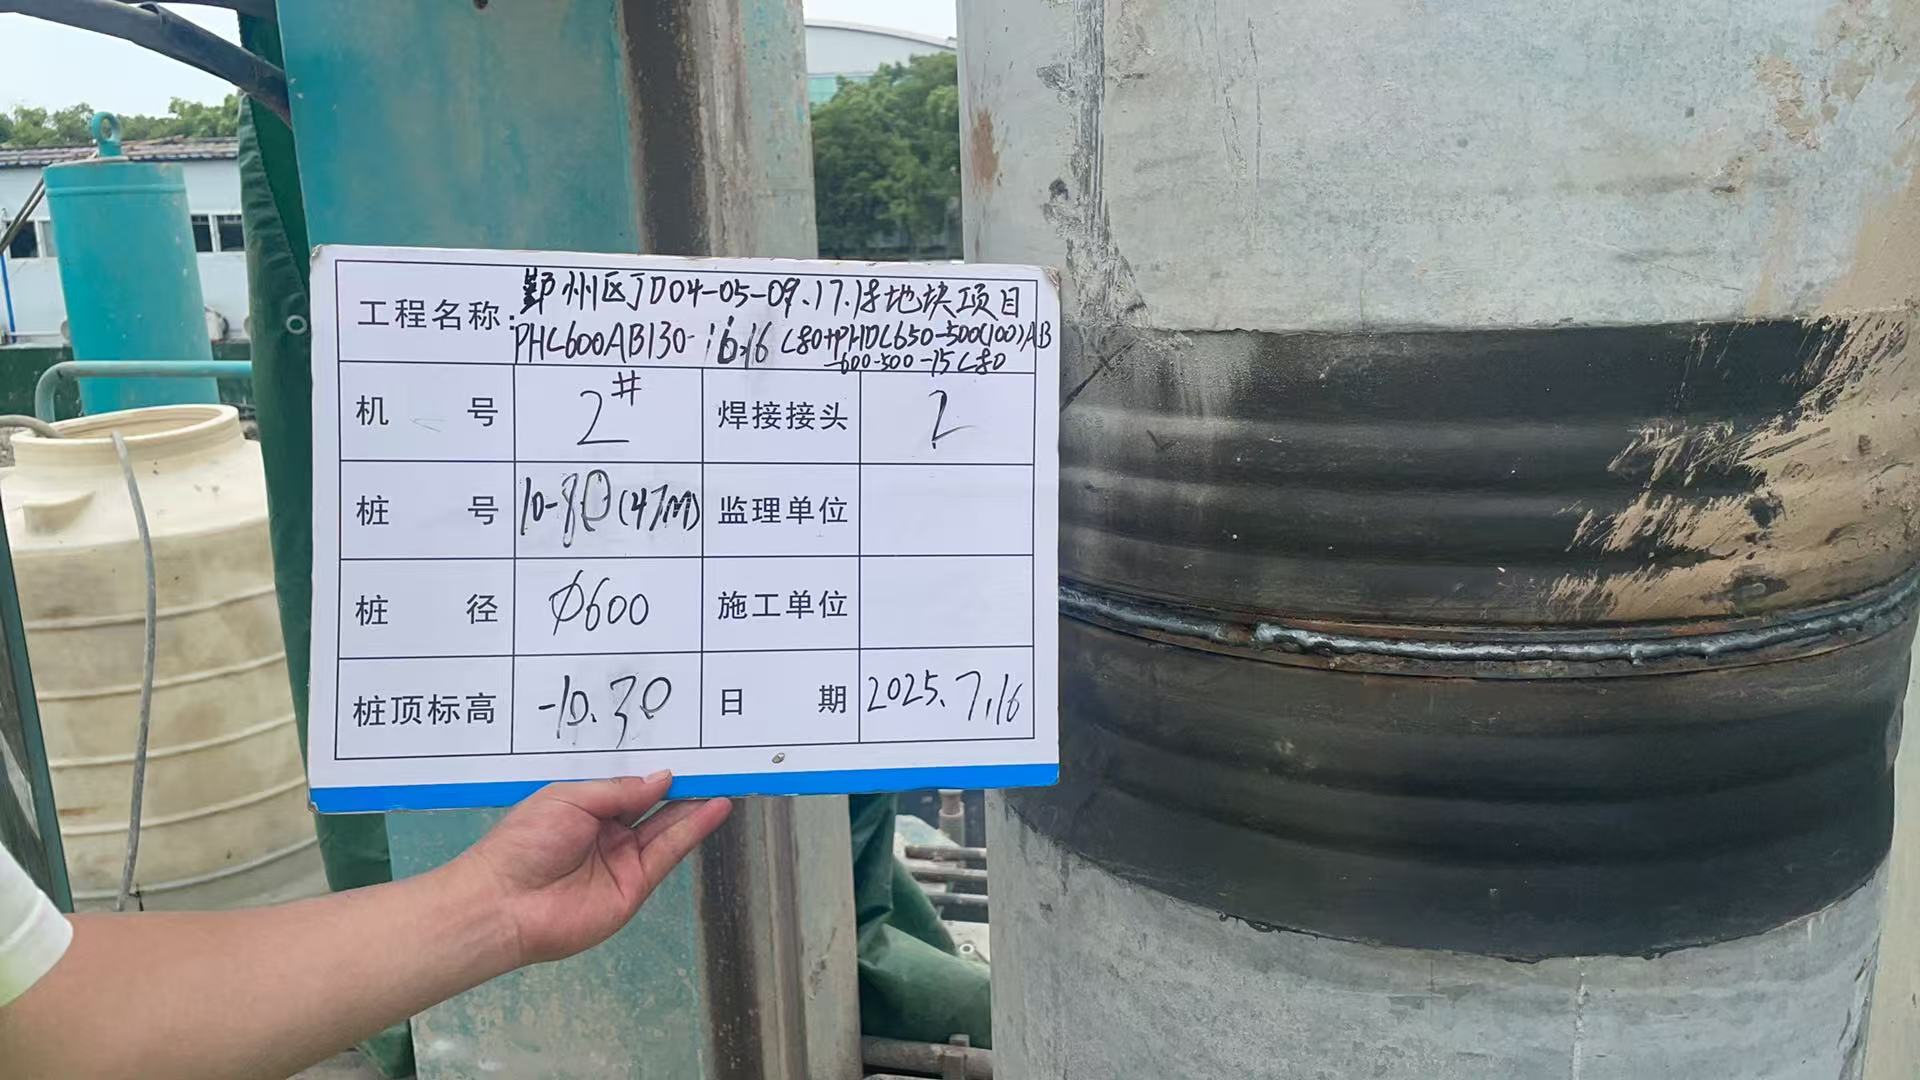 工程名称: 鄞州区JD04-05-09.17.18地块项目
PHC600AB130-16,16 C80+PHDC650-500(100)AB
-600-500-15C80
机号 2# 焊接接头 2
桩号 10-80(47M) 监理单位
桩径 Φ600 施工单位
桩顶标高 -10.30 日期 2025.7.16